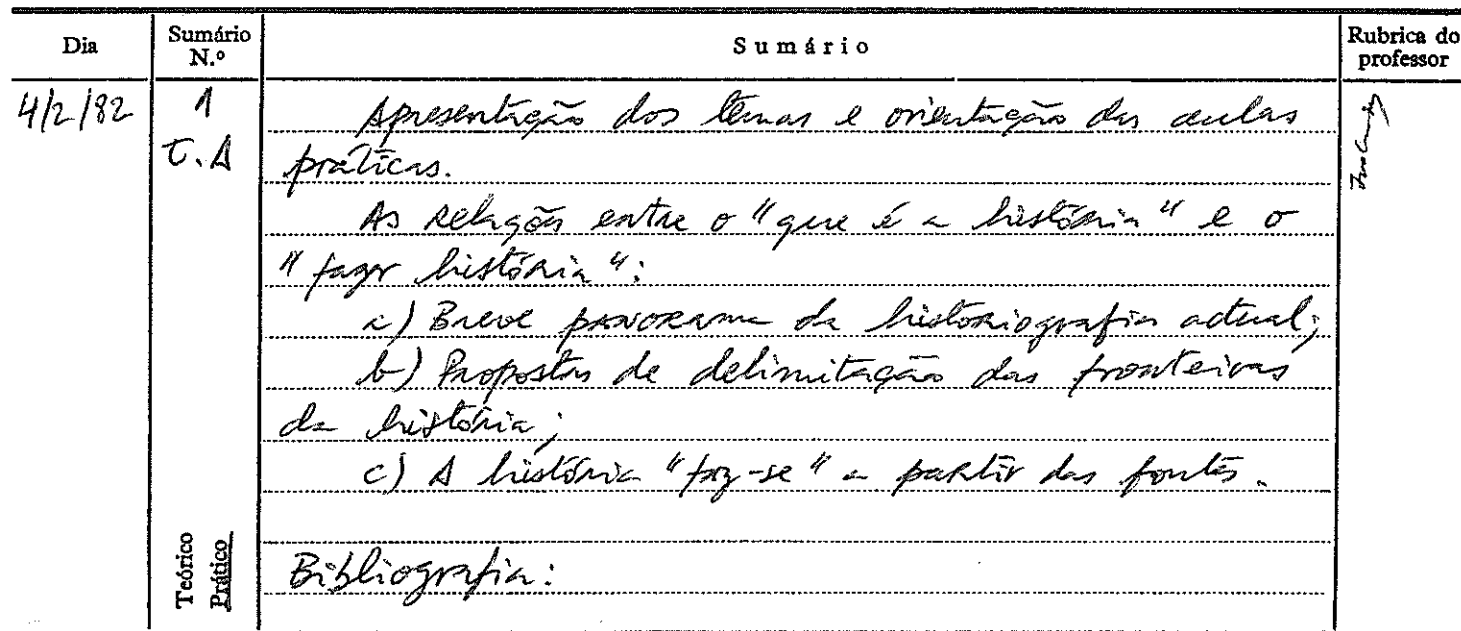 Dia Sumário N.º Sumário Rubrica do professor
4/2/82 1 Apresentação dos temas e orientação das aulas
T.A práticas.
As relações entre o "que é a história" e o
"fazer história":
a) Breve panorama da historiografia actual;
b) Propostas de delimitação das fronteiras
da história;
c) A história "faz-se" a partir das fontes.
Teórico
Prático
Bibliografia: